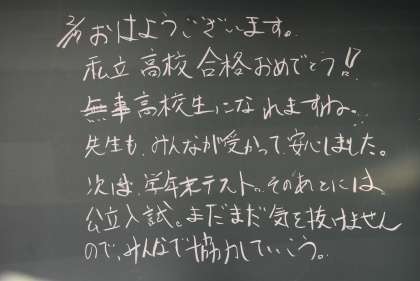 2/11 おはようございます。
私立高校合格おめでとう!!
無事高校生になれますね。
先生も、みんなが受かって安心しました。
次は、学年末テスト。そのあとには、
公立入試。まだまだ気を抜けません
ので、みんなで協力していこう。